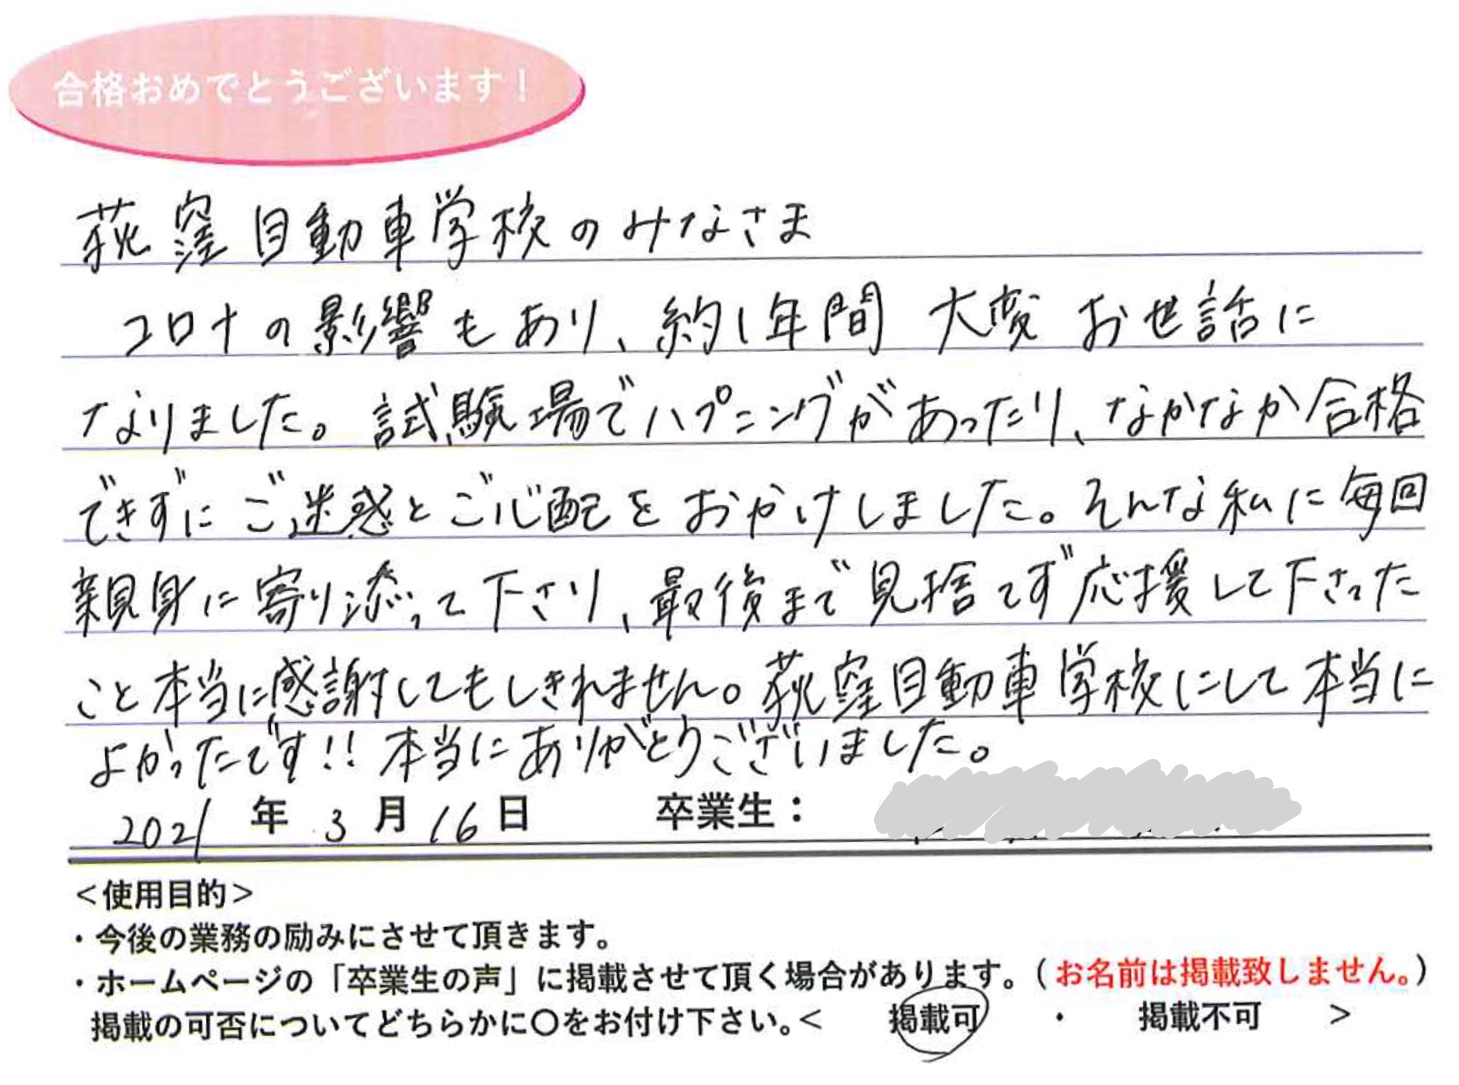 合格おめでとうございます！
荻窪自動車学校のみなさま
コロナの影響もあり、約1年間 大変 お世話に
なりました。試験場でハプニングがあったり、なかなか合格
できずに ご迷惑と ご心配を おかけしました。そんな私に毎回
親身に寄り添って下さり、最後まで見捨てず応援して下さった
こと本当に感謝してもしきれません。荻窪自動車学校にして本当に
よかったです!! 本当にありがとうございました。
2021 年 3 月 16 日 卒業生：
＜使用目的＞
・今後の業務の励みにさせて頂きます。
・ホームページの「卒業生の声」に掲載させて頂く場合があります。（お名前は掲載致しません。）
掲載の可否についてどちらかに〇をお付け下さい。＜ 掲載可 ・ 掲載不可 ＞